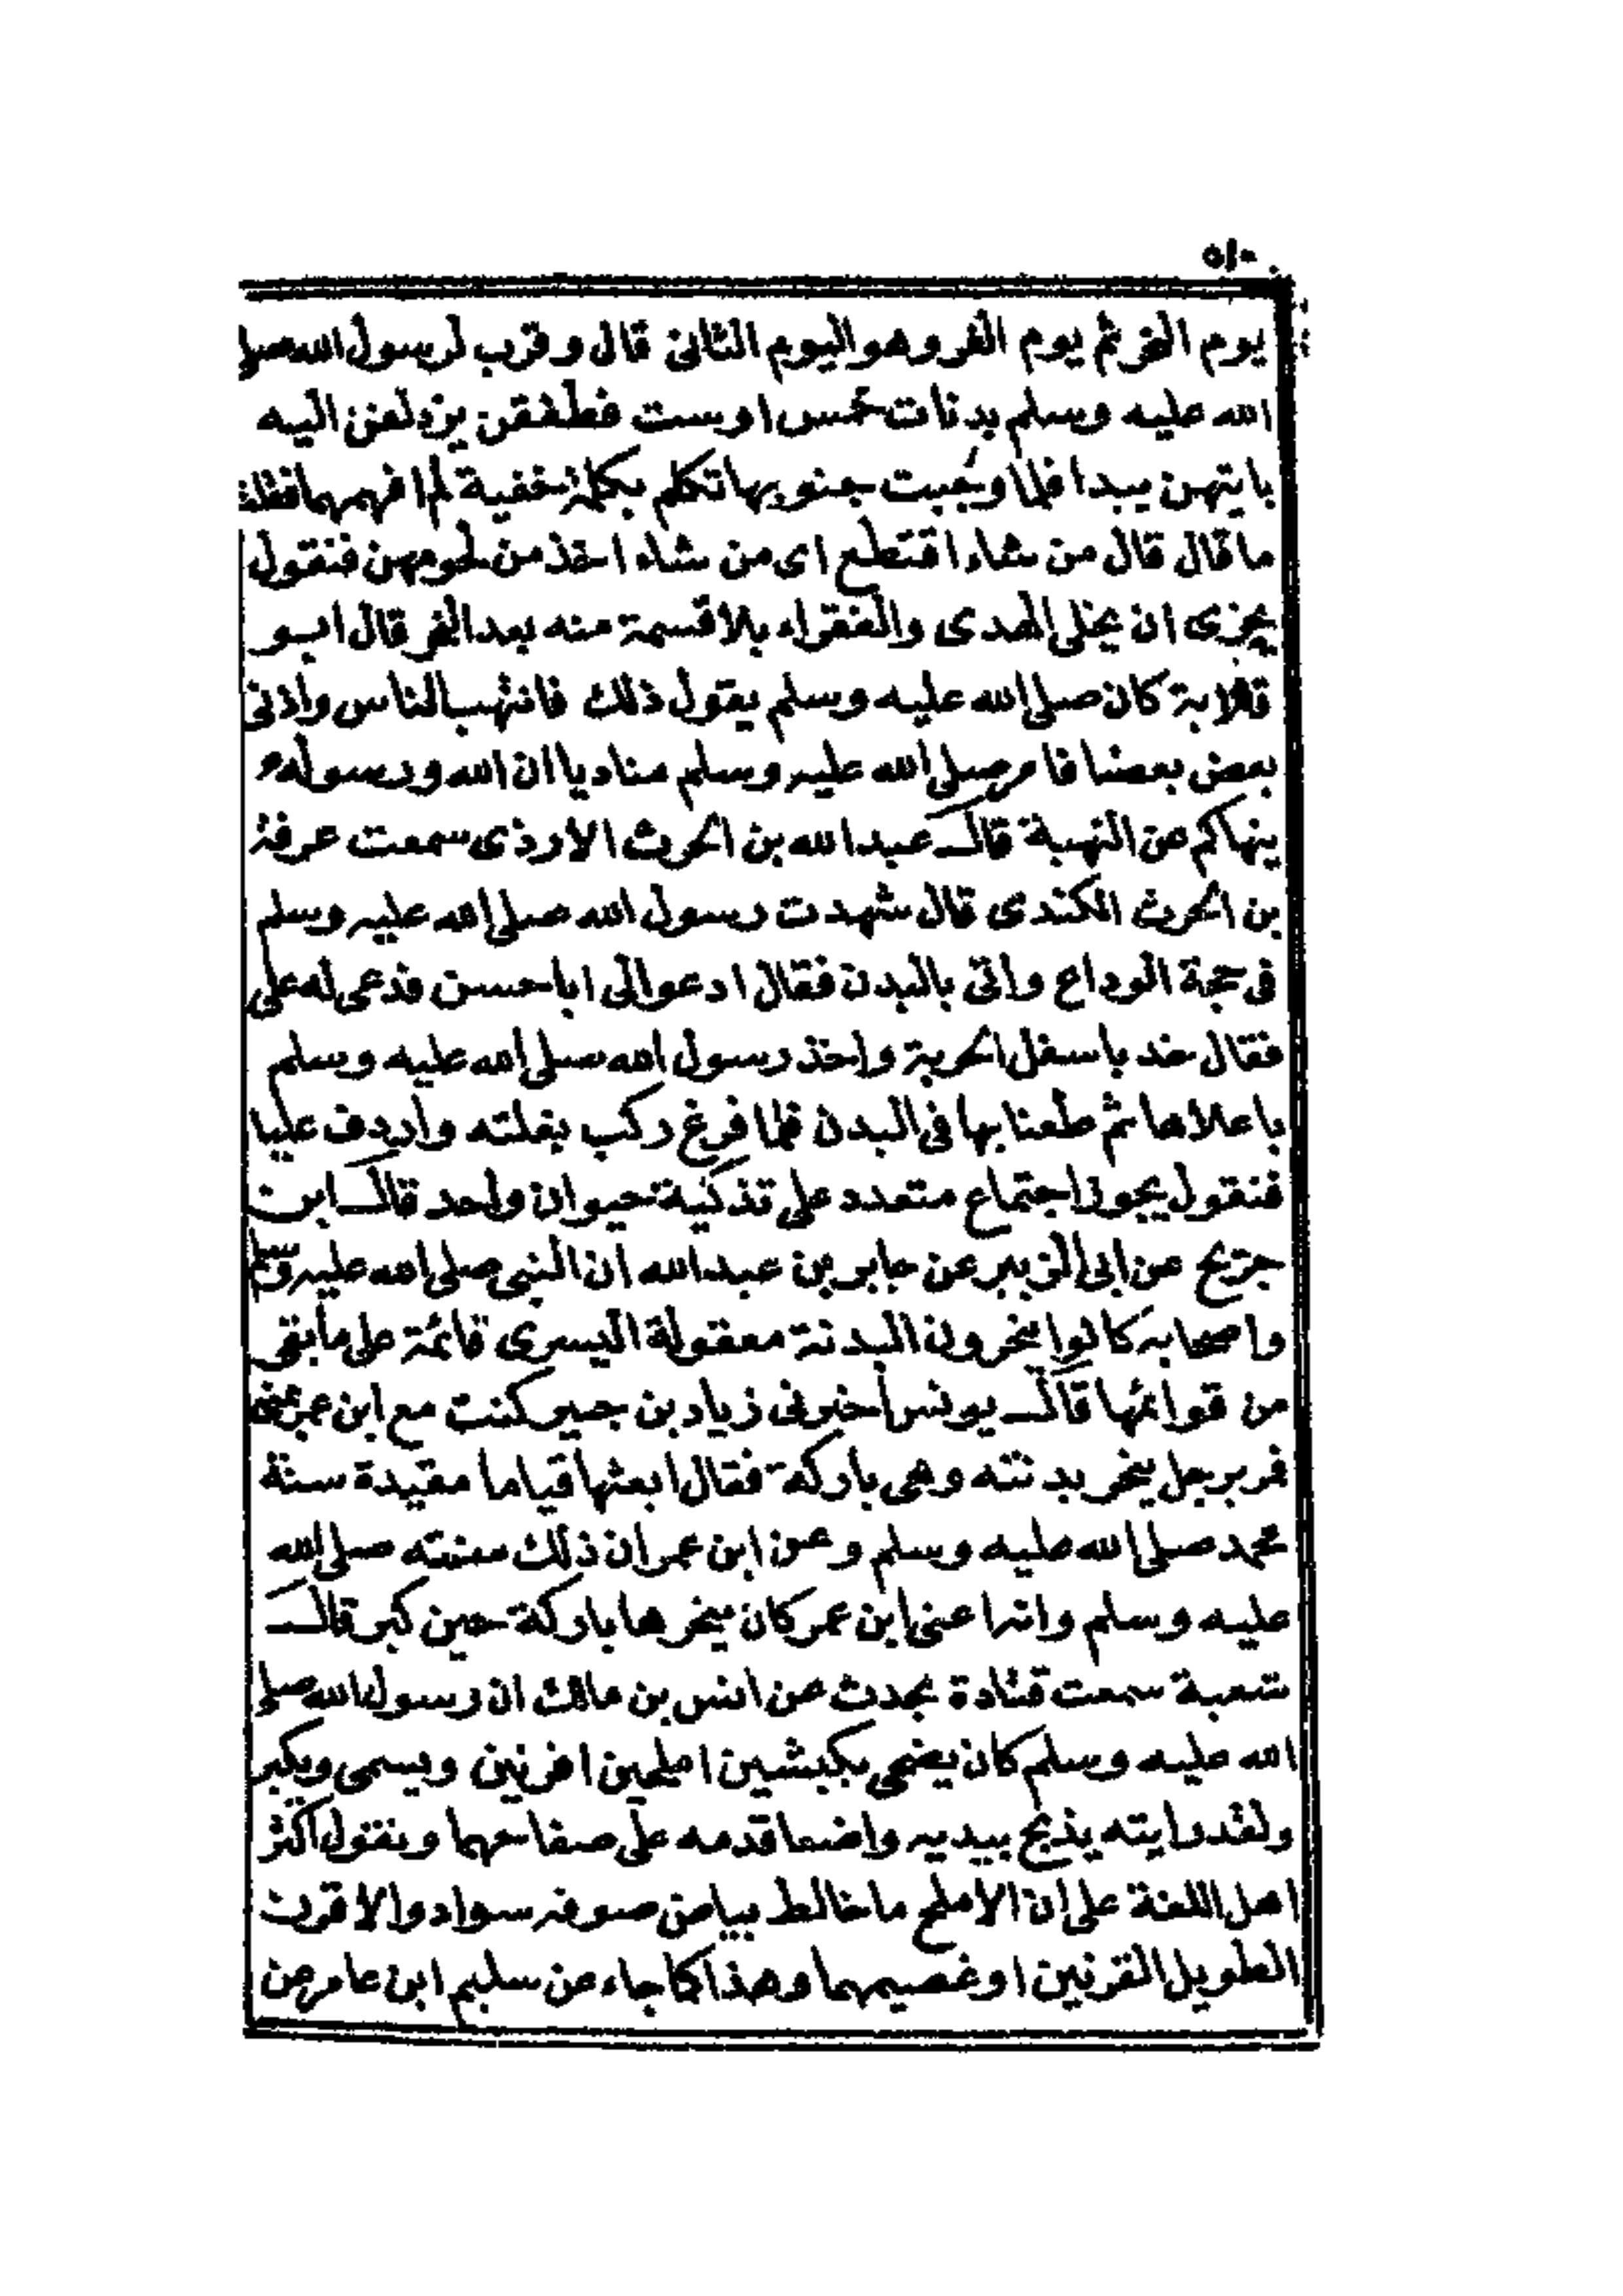 ٥١٠
يوم النحر ثم يوم القر وهو اليوم الثانى قال وقرب لرسول الله صلى
الله عليه وسلم بدنات خمس او ست فطفقن يزدلفن اليه
بايتهن يبدا فلما وجبت جنوبها تكلم بكلمة خفية لم افهمها فقلت
ما قال قال من شاء اقتطع اى من شاء اخذ من لحومهن فنقول
يجزى ان يخلى الهدى والفقراء بلا قسمة منه بعد النحر قال ابو
قلابة كان صلى الله عليه وسلم يقول ذلك فانتهب الناس واذنى
بعض بعضا فامر صلى الله عليه وسلم مناديا ان الله ورسوله
ينهاكم عن النهبة قال عبد الله بن الحرث الازدى سمعت عرفة
بن الحرث الكندى قال شهدت رسول الله صلى الله عليه وسلم
فى حجة الوداع واتى بالبدن فقال ادعوا لى ابا حسن فدعى له على
فقال خد باسفل الحربة واخذ رسول الله صلى الله عليه وسلم
باعلاها ثم طعنا بها فى البدن فلما فرغ ركب بغلته واردف عليا
فنقول يجوز اجتماع متعدد على تذكية حيوان واحد قال ابن
جريج عن ابى الزبير عن جابر بن عبد الله ان النبى صلى الله عليه وسلم
واصحابه كانوا ينحرون البدنة معقولة اليسرى قائمة على ما بقى
من قوائمها قال يونس اخبرنى زياد بن جبير كنت مع ابن عمر بمنى
فمر برجل ينحر بدنته وهى باركة فقال ابعثها قياما مقيدة سنة
محمد صلى الله عليه وسلم وعن ابن عمر ان ذلك سنته صلى الله
عليه وسلم وانه اعنى ابن عمر كان ينحرها باركة حين كبر قال
شعبة سمعت قتادة يحدث عن انس بن مالك ان رسول الله صلى
الله عليه وسلم كان يضحى بكبشين املحين اقرنين ويسمى ويكبر
ولقد رايته يذبح بيديه واضعا قدمه على صفاحهما ونقول اكثر
اهل اللغة على ان الاملح ما خالط بياض صوفه سواد والاقرن
الطويل القرنين او غصيمهما وهذا كما جاء عن سليم ابن عامر عن